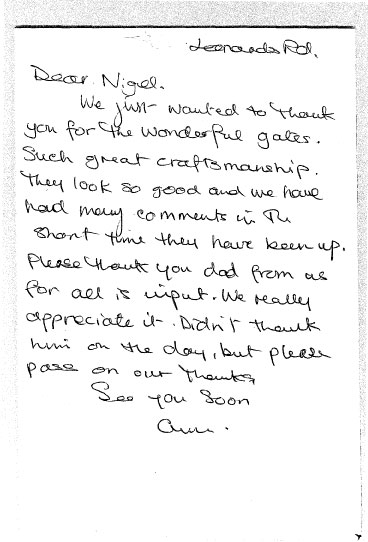 Leonards Rd.
Dear Nigel.
We just wanted to thank
you for the wonderful gates.
Such great craftsmanship.
They look so good and we have
had many comments in the
short time they have been up.
Please thank you dad from us
for all is input. We really
appreciate it. Didn't thank
him on the day, but please
pass on our thanks,
See you soon